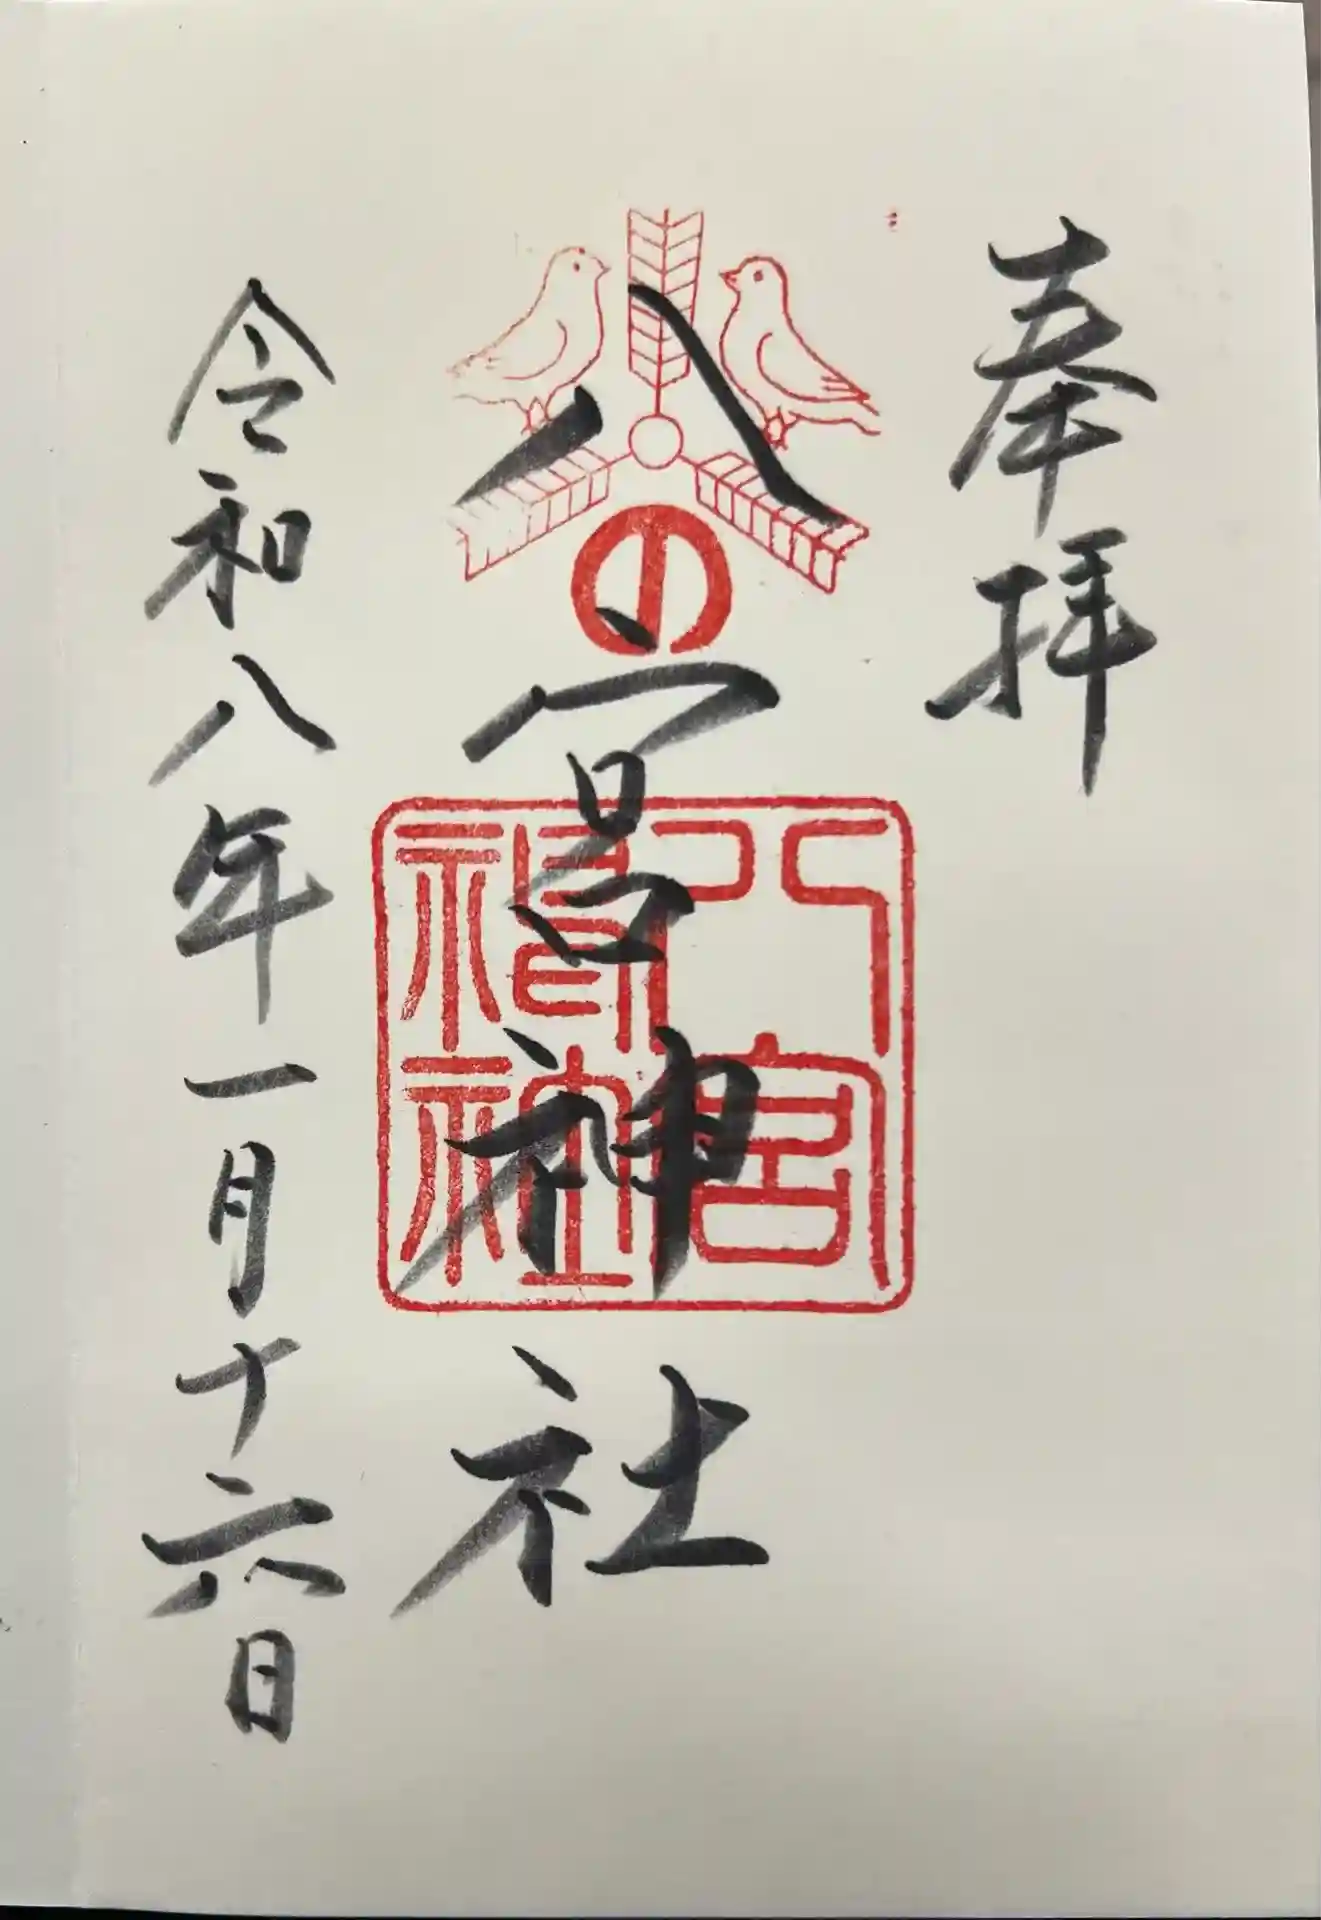 奉拝
八宮神社
の
八宮
神社
令和八年一月十六日